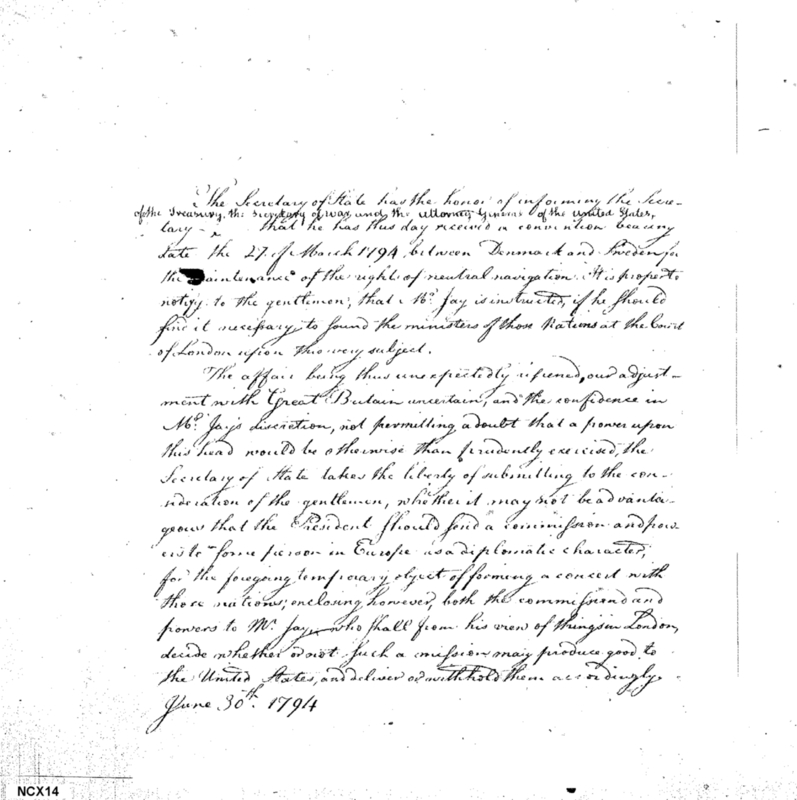 The Secretary of State has the honor of informing the Secre-
of the Treasury, the Secretary of war and the Attorney General of the United States,
tary - that he has this day received a convention bearing
date the 27. of March 1794, between Denmark and Sweden for
the maintenance of the rights of neutral navigation. It is proper to
notify to the gentlemen, that Mr. Jay is instructed, if he should
find it necessary, to sound the ministers of those Nations at the Court
of London upon this very subject.
The affair being thus unexpectedly ripened, our adjust-
ment with Great Britain uncertain, and the confidence in
Mr. Jay's discretion, not permitting a doubt that a power upon
this head would be otherwise than prudently exercised, the
Secretary of State takes the liberty of submitting to the con-
sideration of the gentlemen, whether it may not be advanta-
geous that the President should send a commission and pow-
ers to some person in Europe as a diplomatic character,
for the foregoing temporary object of forming a concert with
those nations; enclosing however, both the commission and
powers to Mr. Jay, who shall from his view of things in London,
decide whether or not such a mission may produce good to
the United States, and deliver or withhold them accordingly.
June 30th. 1794
NCX14